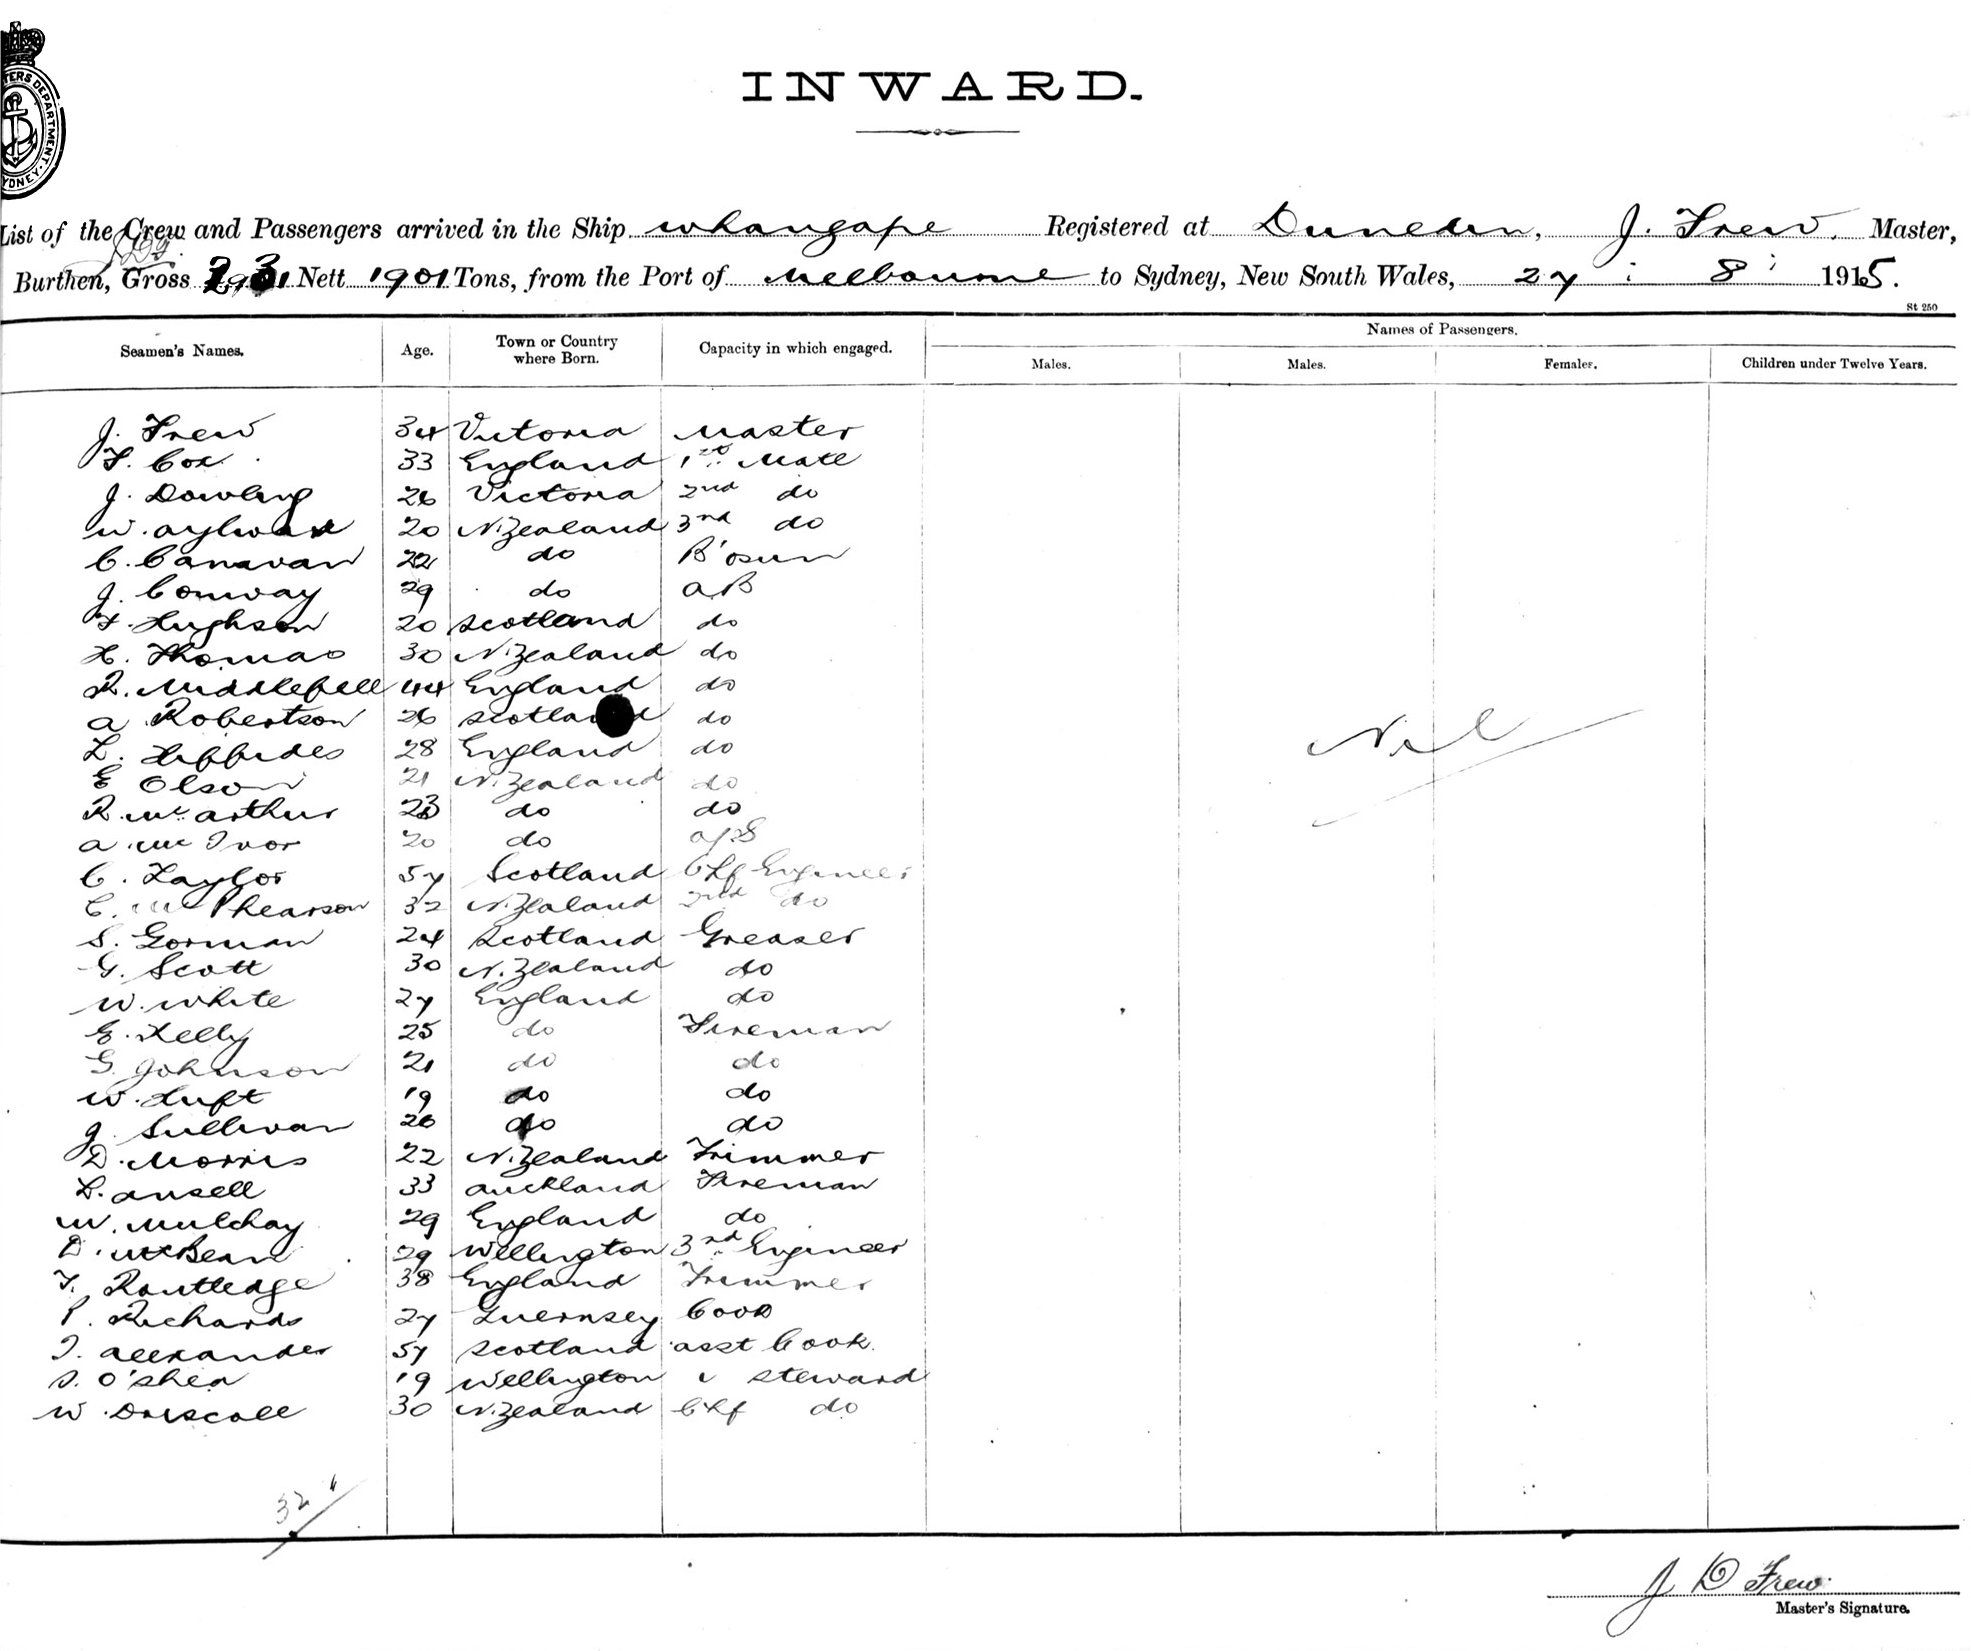 INWARD.
List of the Crew and Passengers arrived in the Ship whangape Registered at Dunedin, J. Frew. Master,
Burthen, Gross Nett 1901 Tons, from the Port of Melbourne to Sydney, New South Wales, 27 : 8 : 1915.
St 250
Seamen's Names. Age. Town or Country where Born. Capacity in which engaged. Names of Passengers.
Males. Males. Females. Children under Twelve Years.
J. Frew 34 Victoria Master
F. Cox 33 England 1st Mate
J. Dowling 26 Victoria 2nd do
W. Aylward 20 N. Zealand 3rd do
C. Canavan 22 do B'osun
J. Conway 29 do AB
Hughson 20 Scotland do
H. Thomas 30 N. Zealand do
R. Middlefell 44 England do
A Robertson 26 Scotland do
28 England do
E Olson 21 N. Zealand do
R. McArthur 23 do do
A. McIvor 20 do
C. Taylor 57 Scotland Chf Engineer
C. McPhearson 32 N. Zealand 2nd do
S. Gorman 24 Scotland Greaser
G. Scott 30 N. Zealand do
W. White 27 England do
E. Kelly 25 do Fireman
G. Johnson 21 do do
W. Luft 19 do do
J Sullivan 26 do do
D. Morris 22 N. Zealand Trimmer
L. Ansell 33 Auckland Fireman
W. Mulchay 29 England do
D. McBean 29 Wellington 3rd Engineer
T. Routledge 38 England Trimmer
P. Richards 27 Guernsey Cook
J. Alexander 57 Scotland asst Cook
S. O'Shea 19 Wellington " Steward
W. Driscoll 30 N. Zealand Chf do
Nil
32
J D Frew
Master's Signature.